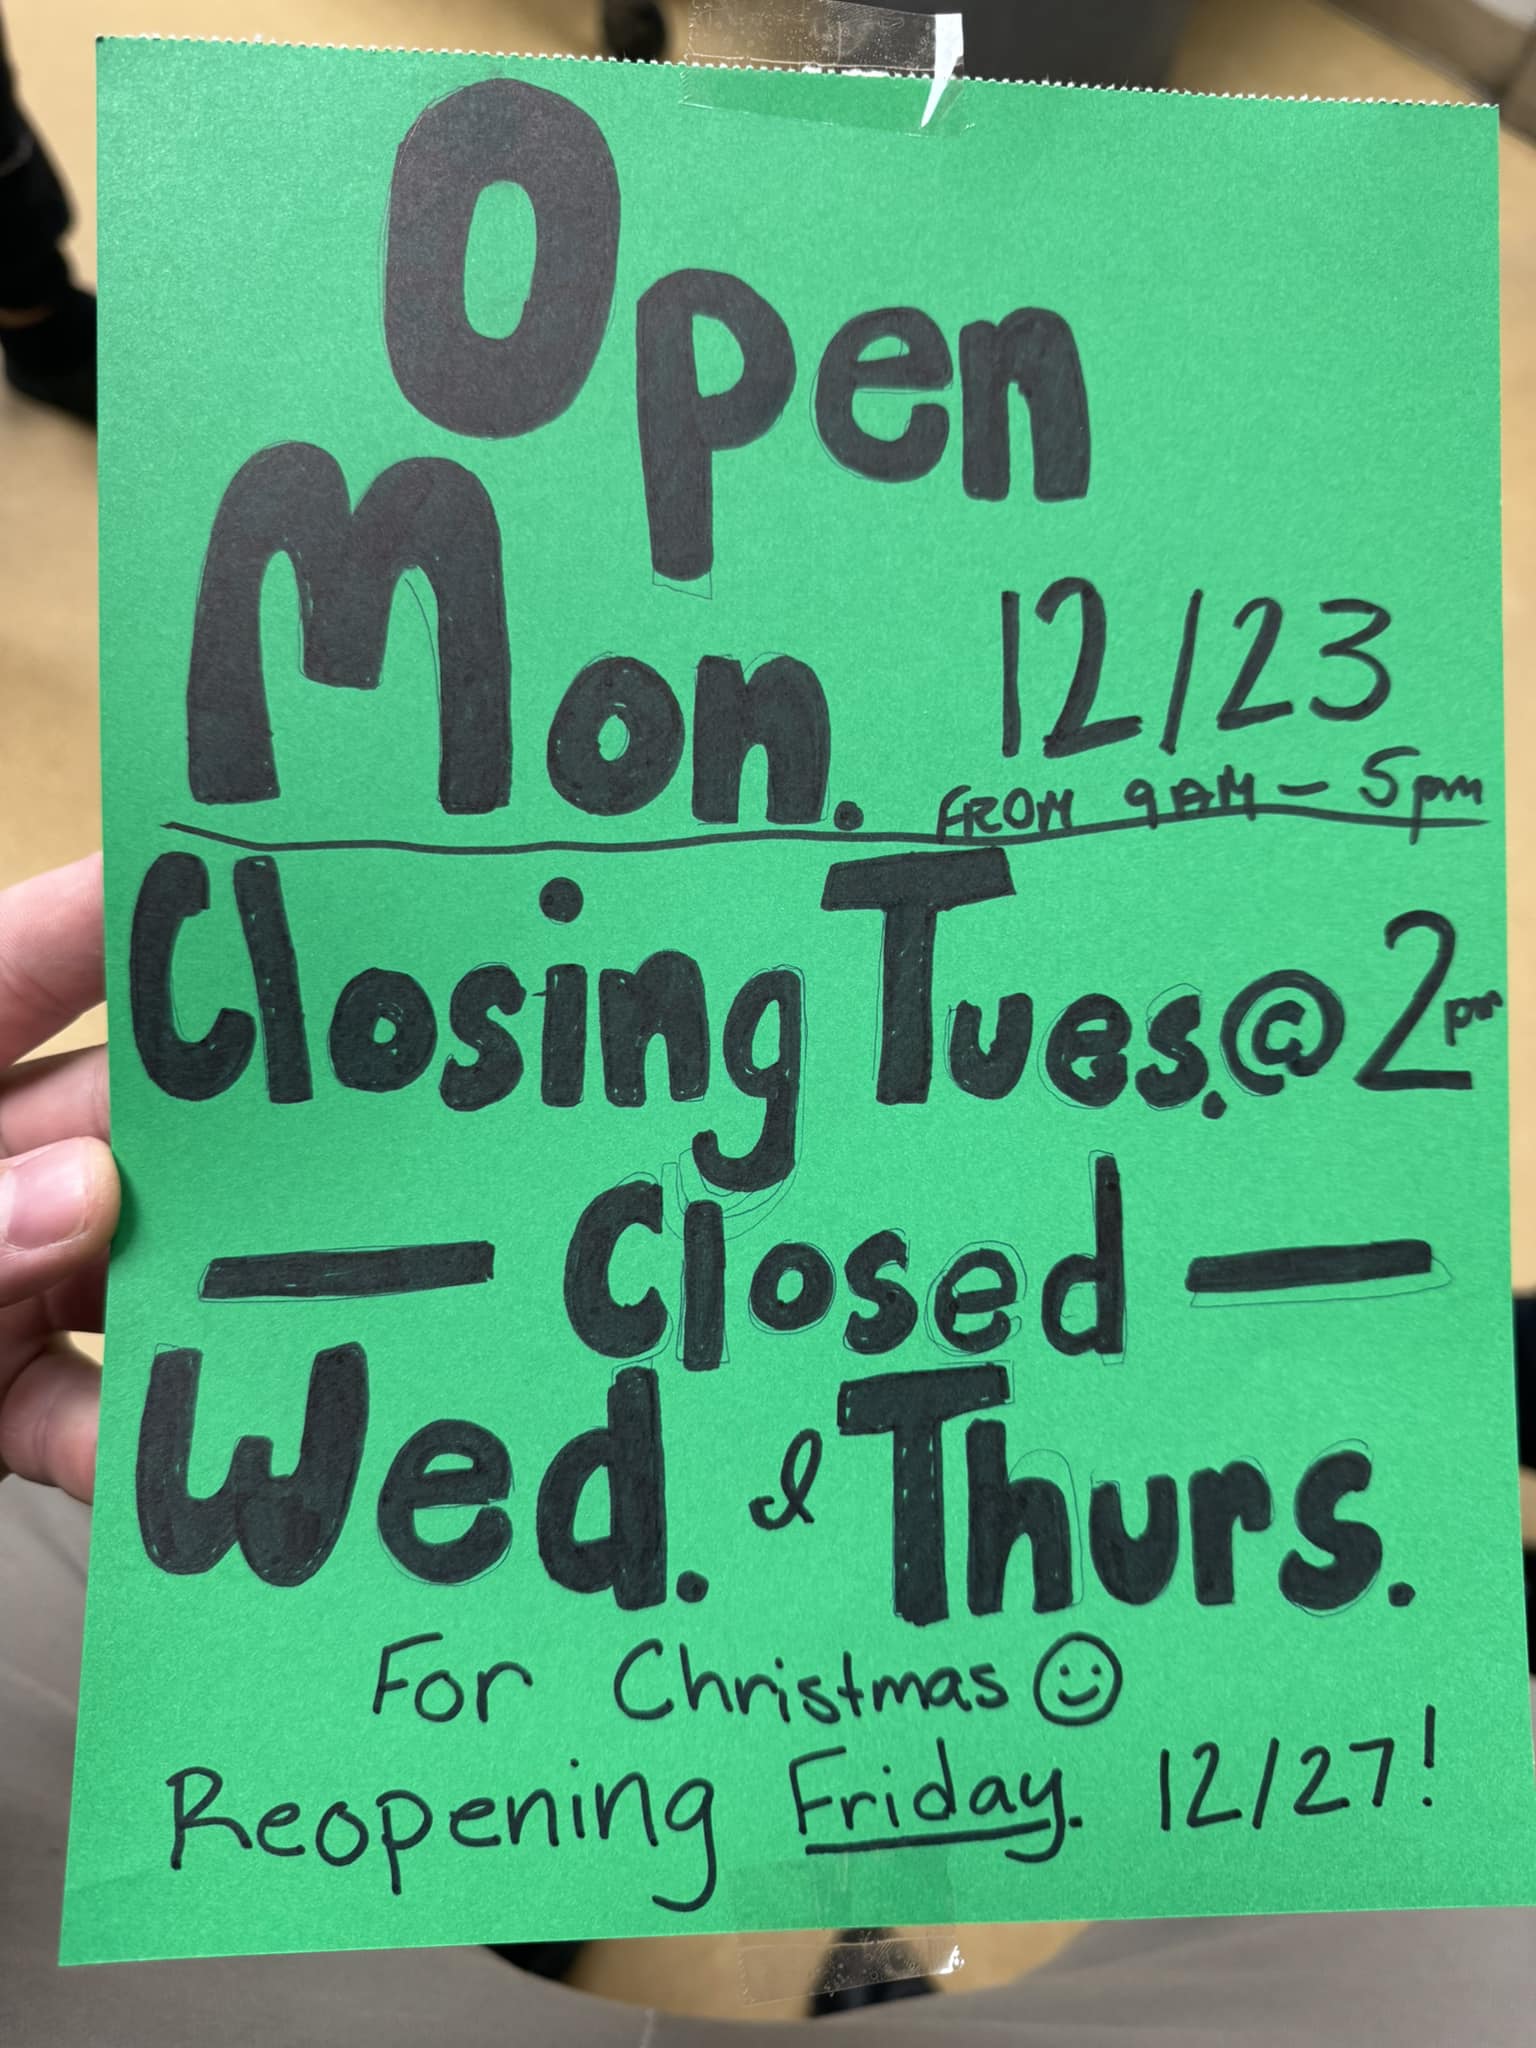 Open
Mon. 12/23
FROM 9AM - 5pm
Closing Tues. @ 2pm
— Closed —
Wed. & Thurs.!
For Christmas ☺
Reopening Friday. 12/27!